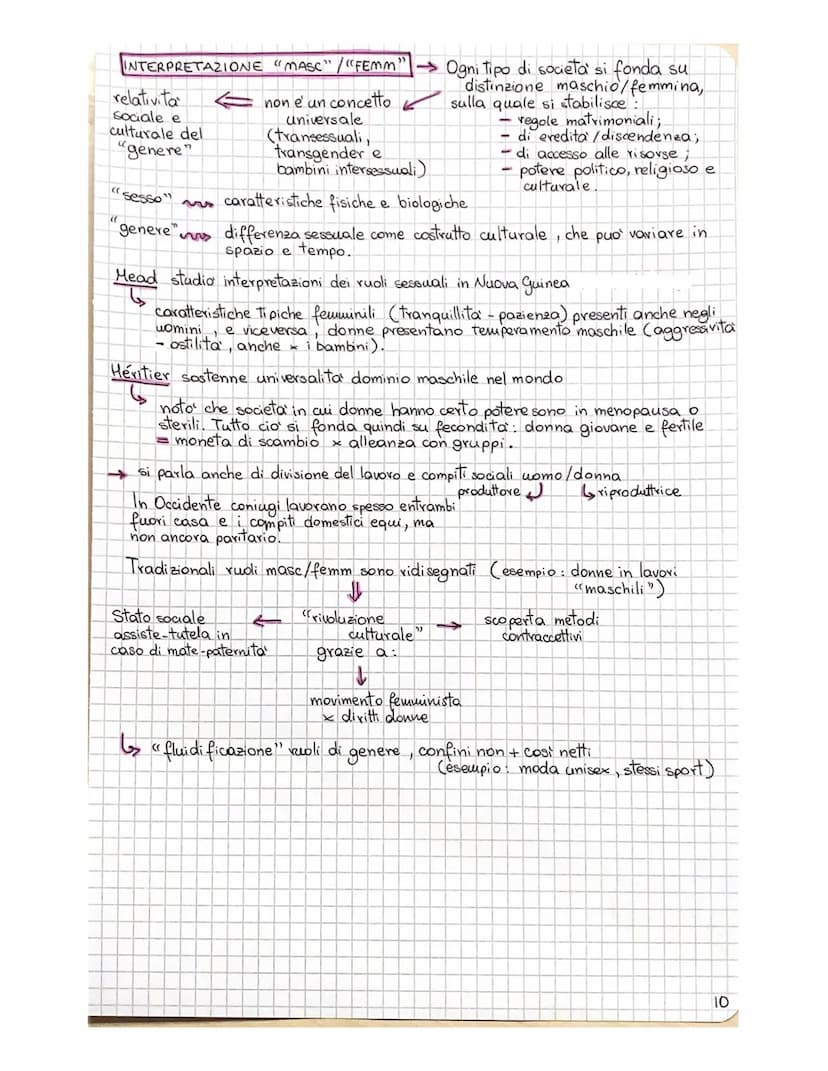 INTERPRETAZIONE "MASC" / "FEMM" → Ogni tipo di società si fonda su
distinzione maschio/femmina,
sulla quale si stabilisce:
- regole matrimoniali;
- di eredità/discendenza;
- di accesso alle risorse;
- potere politico, religioso e
culturale.
non è un concetto
universale
(transessuali,
transgender e
bambini intersessuali)
relatività
sociale e
culturale del
"genere"
"sesso" caratteristiche fisiche e biologiche
"genere" differenza sessuale come costrutto culturale, che può variare in
spazio e tempo.
Mead studio interpretazioni dei ruoli sessuali in Nuova Guinea
caratteristiche tipiche femminili (tranquillità - pazienza) presenti anche negli
uomini, e viceversa, donne presentano temperamento maschile (aggressività
- ostilità, anche × i bambini).
Héritier sostenne universalità dominio maschile nel mondo
notò che società in cui donne hanno certo potere sono in menopausa o
sterili. Tutto ciò si fonda quindi su fecondità: donna giovane e fertile
= moneta di scambio × alleanza con gruppi.
→ si parla anche di divisione del lavoro e compiti sociali uomo/donna
produttore riproduttrice
In Occidente coniugi lavorano spesso entrambi
fuori casa e i compiti domestici equi, ma
non ancora paritario.
Tradizionali ruoli masc/femm sono ridisegnati (esempio: donne in lavori
"maschili")
"rivoluzione
culturale"
grazie a:
Stato sociale
assiste-tutela in
caso di mate-paternità
scoperta metodi
contraccettivi
movimento femminista
× diritti donne
"fluidificazione" ruoli di genere, confini non + così netti
(esempio: moda unisex, stessi sport)
10